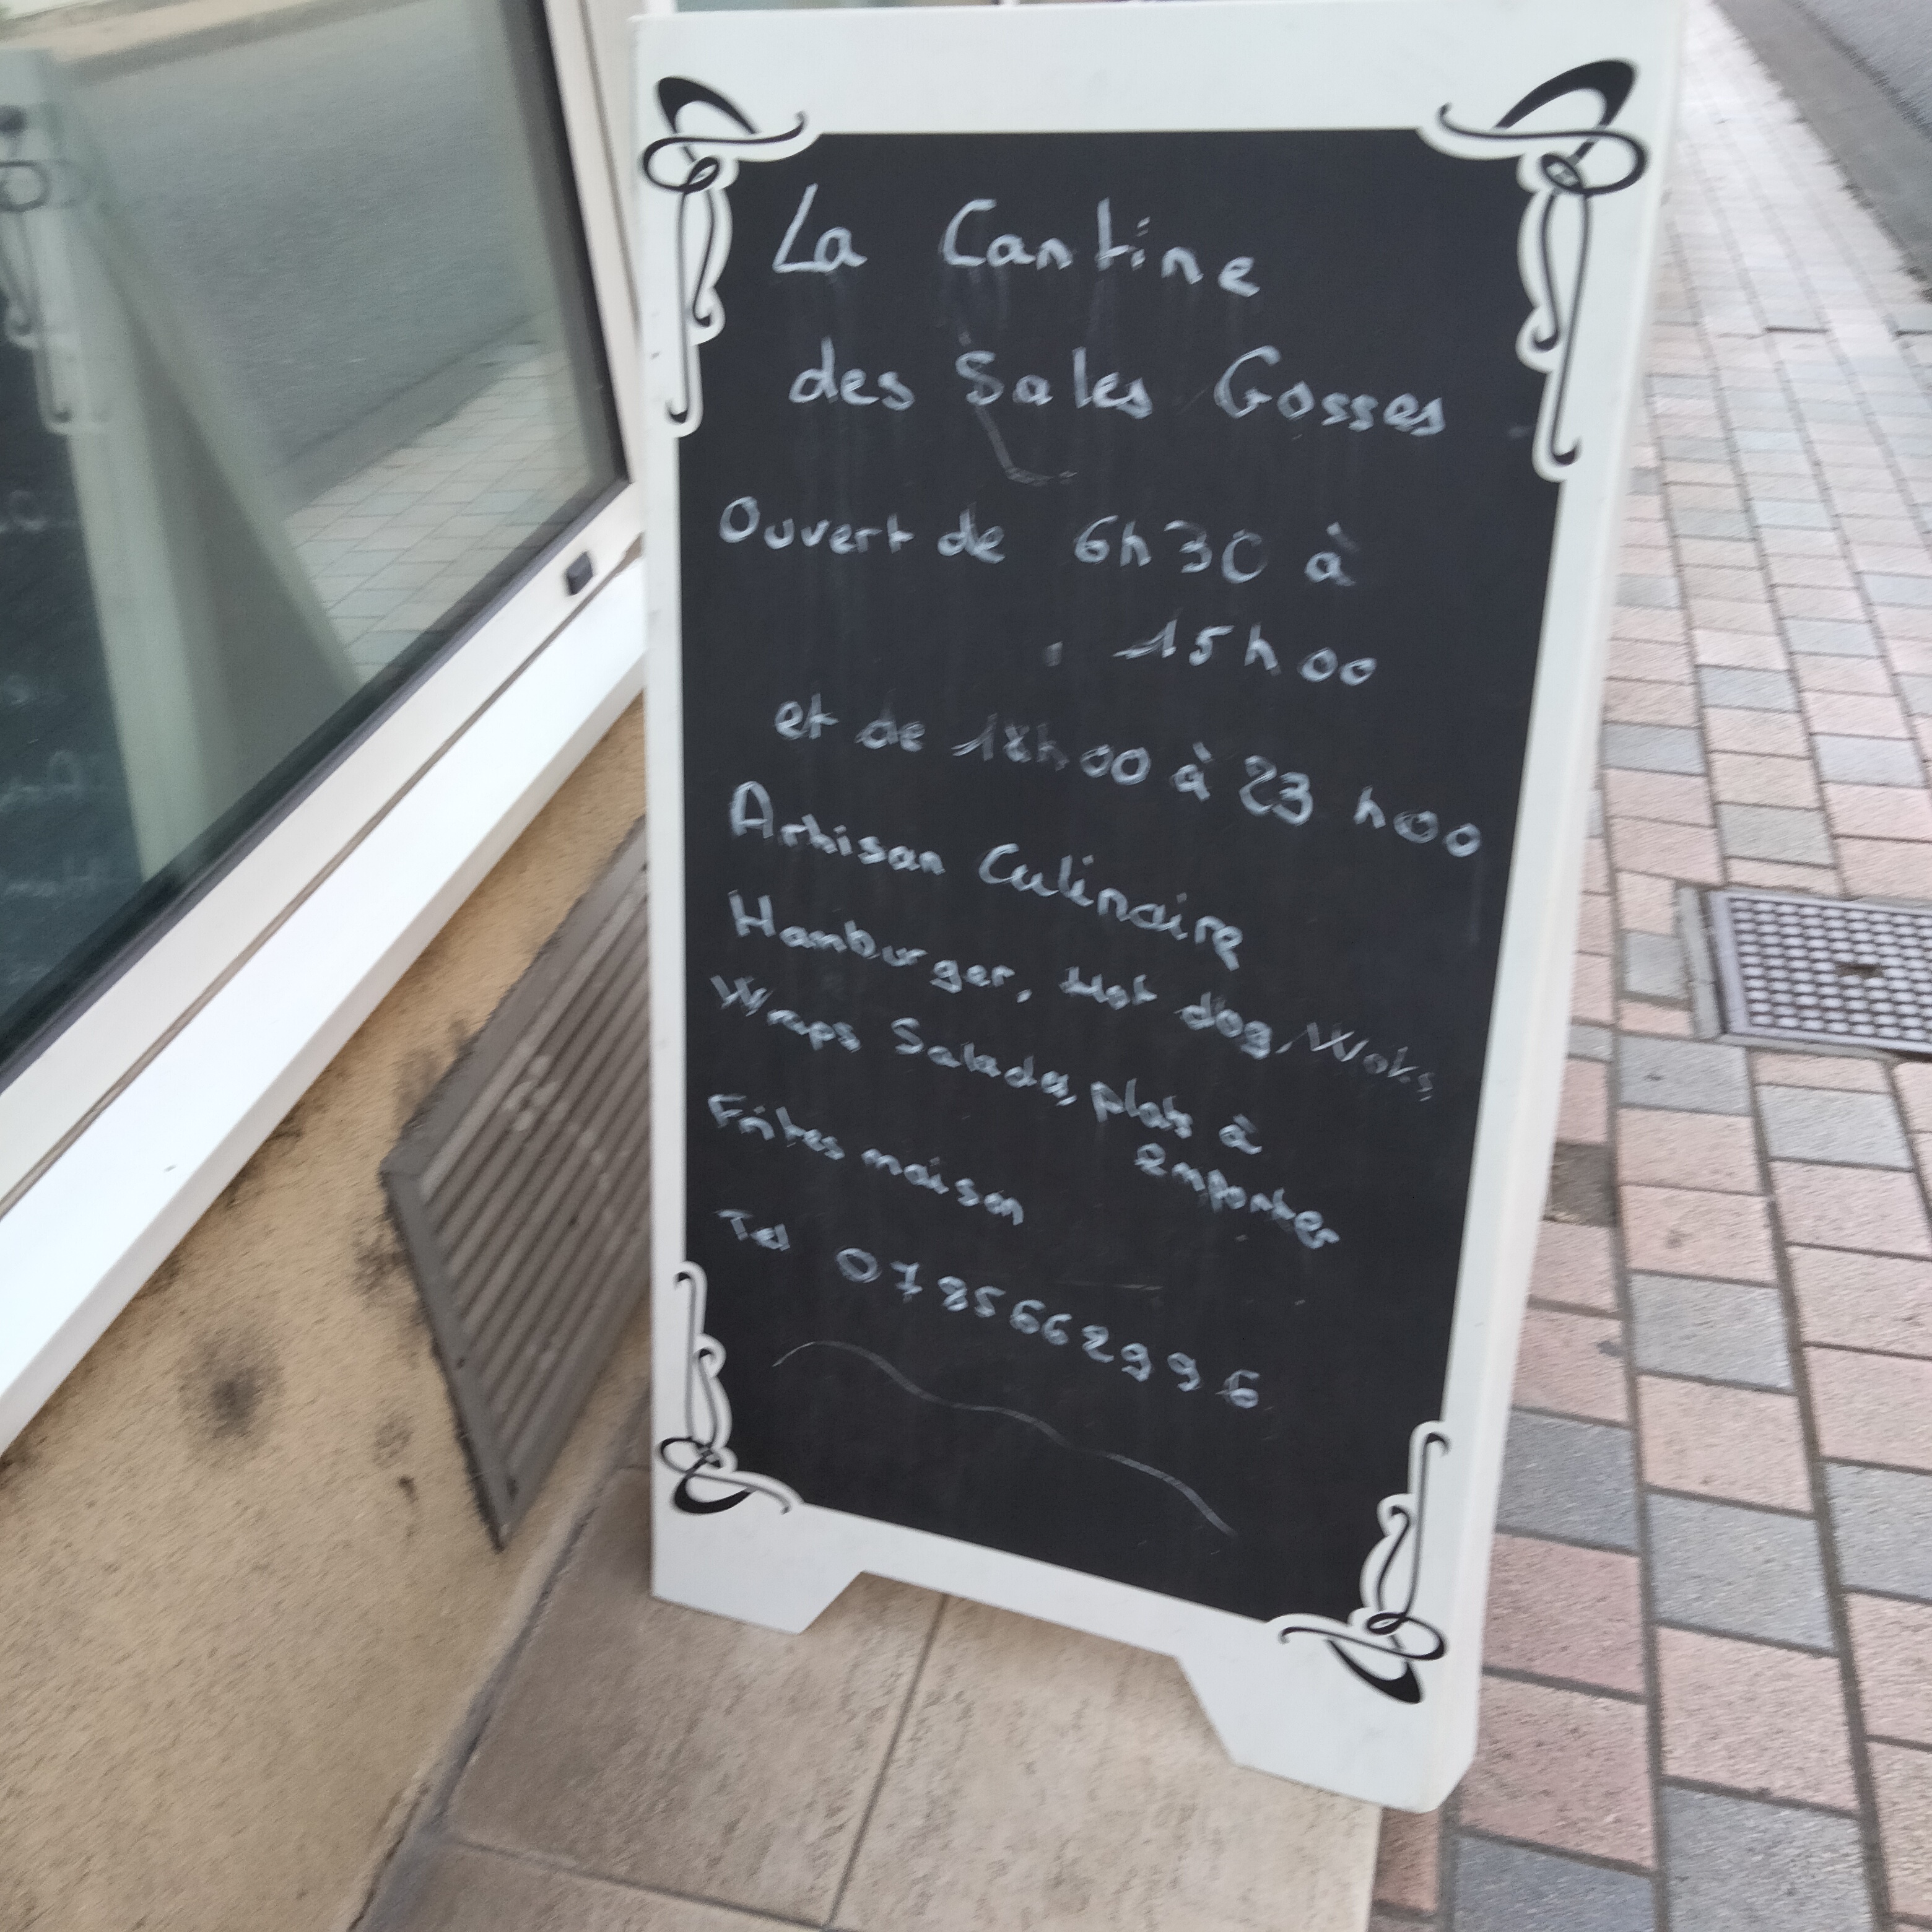 La Cantine
des Sales Gosses
Ouvert de 6h30 à
15h00
et de 18h00 à 23h00
Artisan Culinaire
Hamburger, Hot dog, Woks
Wraps Salades, plats à
emporter
Frites maison
Tel 0785662996